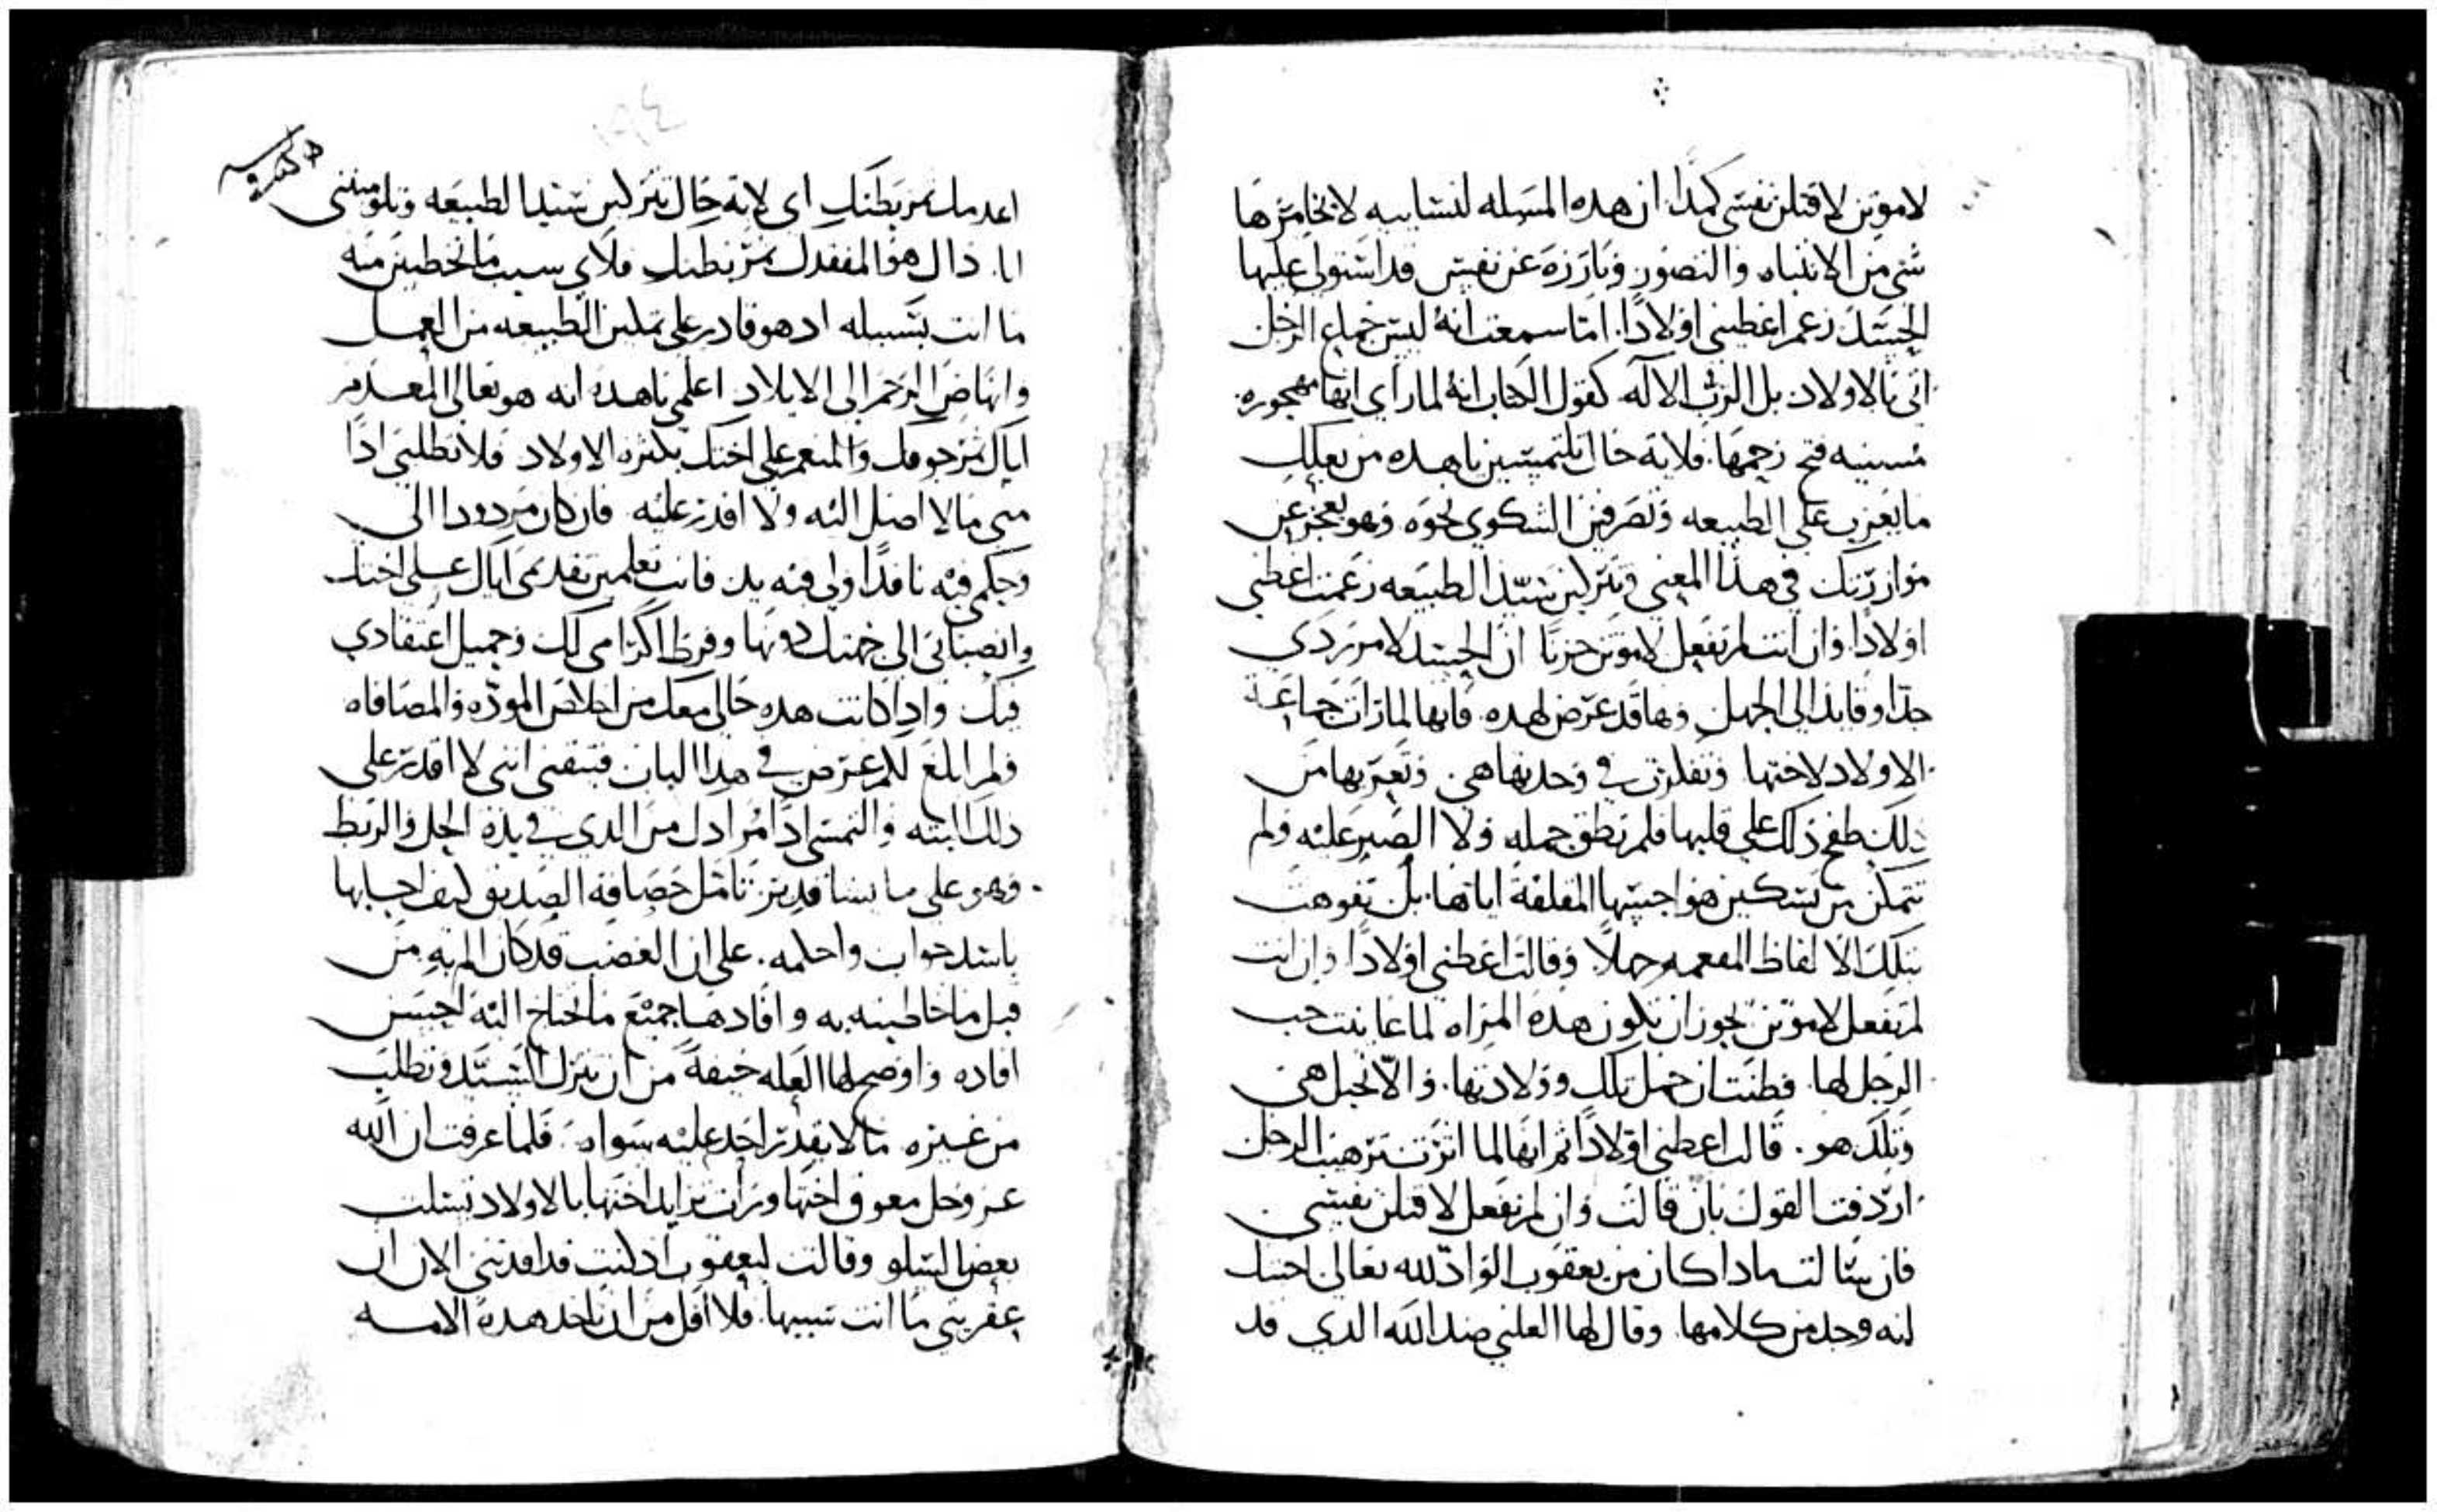 لاموتن لاقتلن نفسي كمدا. ان هده المسله لنسابيه لا يخامرها
شي من الانتباه والتصور وبارزه عن نفس قد استولي عليها
الحسد زعم اعطيني اولادا. اما سمعت انه ليس جماع الرجل
اتي بالاولاد بل الرب الاله كقول الكتاب انه لما راي انها مهجوره
مسنيه فتح رحمها. فلاية حال تلتمسين ياهده من بعلك
ما يعزب علي الطبيعه وتصرفين الشكوي نحوه وهو يعجز عن
موازرتك في هدا المعني وتتركين سيد الطبيعه زعمت اعطني
اولادا. وان انت لم تفعل لاموتن حزنا ان الحسد لامر ردي
جدا وقايد الي الجهل وها قد عرض لهده. فانها لما رات جماعة
الاولاد لاختها وتفكرت في وحدتها هي. وتعريها من
دلك طفح ذلك علي قلبها فلم تطق حمله ولا الصبر عليه ولم
تتمكن من تسكين هواجسها المقلقة اياها. بل تفوهت
بتلك الالفاظ المفعمه جهلا وقالت اعطني اولادا وان انت
لم تفعل لاموتن يجوز ان تكون هده المراه لما عاينت حب
الرجل لها. فظنت ان حمل تلك وولادتها. والا تحبل هي
وتلد هو. قالت اعطني اولادا ثم انها لما اثرت ترهيب الرجل
اردفت القول بان قالت وان لم تفعل لاقتلن نفسي
فان سالت مادا كان من يعقوب الواد لله تعالي احبتك
لنه وجد من كلامها وقال لها العلني ضد الله الدي قد
اعدمك ثمر بطنك اي لاية حال تتركين سيد الطبيعه وتلومينني
انا. داك هو المفقدك ثمر بطنك فلاي سبب ما تخطبين منه
ما انت بسبيله اد هو قادر علي تمكين الطبيعه من العمل
وانهاض الرحم الي الايلاد اعلمي ياهده انه هو تعالي المعدم
اياك ثمر جوفك والمنعم علي اختك بكثره الاولاد فلا تطلبي ادا
مني مالا اصل اليه ولا اقدر عليه فان كان مردودا الي
وحكمي فيه نافدا ولي فيه يد فانت تعلمين تقديمي اياك علي اختك
وانصبابي الي جهتك دونها وفرط اكرامي لك وجميل اعتقادي
فيك وادا كانت هده حالي معك من اخلاص الموده والمصافاه
ولم ابلغ لك غرض في هدا الباب فتيقني انني لا اقدر علي
دلك البته والتمسي ادا مرادك من الدي في يده الحل والربط
وهو علي ما يشا قدير تامل حصافة الصديق كيف اجابها
باسد جواب واحلمه. علي ان الغضب قد كان الم به من
قبل ما خاطبته به وافادها جميع ما احتاج اليه احسن
افاده واوضح لها العله خيفة من ان تترك السيد وتطلب
من غيره مالا يقدر احد عليه سواه. فلما عرفت ان الله
عز وجل معوق اختها ورات تزايد اختها بالاولاد تسلت
بعض السلو وقالت ليعقوب اد كنت قد افدتني الان ان
عقريتي ما انت سببها. فلا اقل من ان تاخد هده الامه